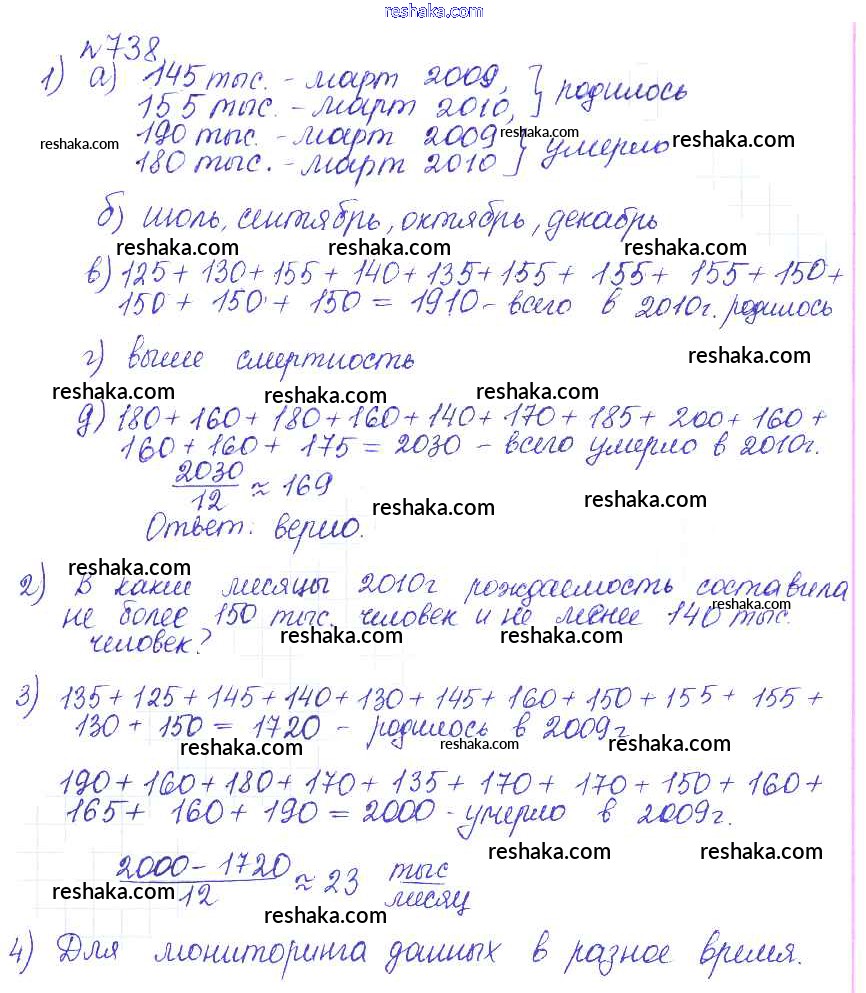 reshaka.com
№738
1) а) 145 тыс. - март 2009, } родилось
155 тыс. - март 2010,
reshaka.com 190 тыс. - март 2009 reshaka.com } умерло reshaka.com
180 тыс. - март 2010
б) июль, сентябрь, октябрь, декабрь
reshaka.com reshaka.com reshaka.com
в) 125 + 130 + 155 + 140 + 135 + 155 + 155 + 155 + 150 +
150 + 150 + 150 = 1910 - всего в 2010г. родилось
г) выше смертность reshaka.com
reshaka.com reshaka.com reshaka.com
д) 180 + 160 + 180 + 160 + 140 + 170 + 185 + 200 + 160 +
160 + 160 + 175 = 2030 - всего умерло в 2010г.
2030/12 ≈ 169 reshaka.com reshaka.com
Ответ: верно.
reshaka.com
2) В какие месяцы 2010г рождаемость составила
не более 150 тыс. человек и не менее 140 тыс. reshaka.com
человек? reshaka.com reshaka.com
3) 135 + 125 + 145 + 140 + 130 + 145 + 160 + 150 + 155 + 155 +
130 + 150 = 1720 - родилось в 2009г
reshaka.com reshaka.com reshaka.com
190 + 160 + 180 + 170 + 135 + 170 + 170 + 150 + 160 +
165 + 160 + 190 = 2000 - умерло в 2009г.
reshaka.com reshaka.com
(2000 - 1720)/12 ≈ 23 тыс/месяц
reshaka.com reshaka.com
reshaka.com
4) Для мониторинга данных в разное время.